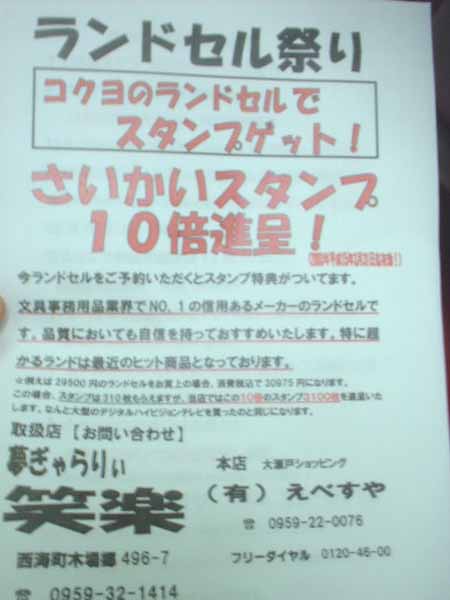 ランドセル祭り
コクヨのランドセルで
スタンプゲット!
さいかいスタンプ
10倍進呈!
今ランドセルをご予約いただくとスタンプ特典がついてます。
文具事務用品業界でNO.1の信用あるメーカーのランドセルで
す。品質においても自信を持っておすすめいたします。特に超
かるランドは最近のヒット商品となっております。
☆例えば29500円のランドセルをお買上の場合、消費税込で30975円になります。
この場合、スタンプは310枚もらえますが、当店ではこの10倍のスタンプ3100枚を進呈いた
します。なんと大型のデジタルハイビジョンテレビを買ったのと同じになります。
取扱店【お問い合わせ】
夢ぎゃらりぃ
笑楽
西海町木場郷496-7
☎ 0959-32-1414
本店 大瀬戸ショッピング
(有)えべすや
☎ 0959-22-0076
フリーダイヤル 0120-46-00